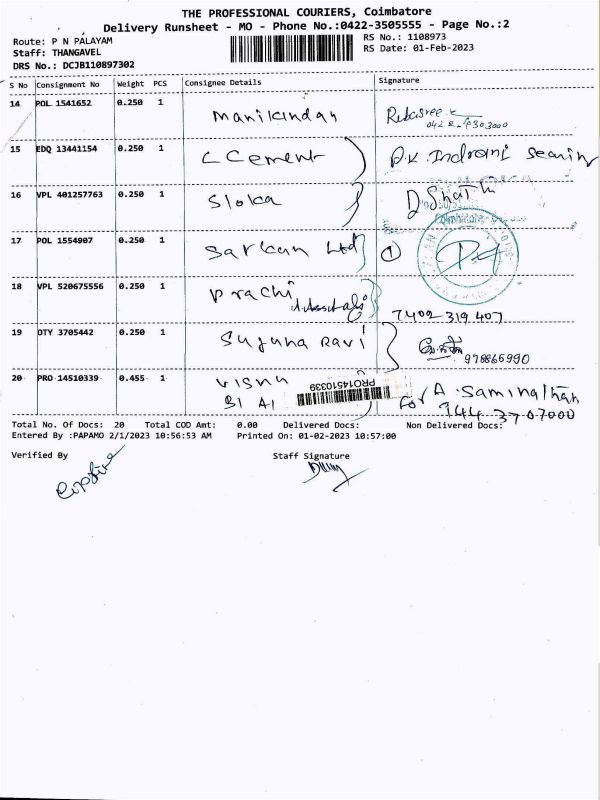 THE PROFESSIONAL COURIERS, Coimbatore
Delivery Runsheet - MO - Phone No.:0422-3505555 - Page No.:2
Route: P N PALAYAM
Staff: THANGAVEL
DRS No.: DCJB110897302
RS No.: 1108973
RS Date: 01-Feb-2023
S No Consignment No Weight PCS Consignee Details Signature
14 POL 1541652 0.250 1 Manikandan
15 EDQ 13441154 0.250 1 C Cement P.K. Indrani
16 VPL 401257763 0.250 1 Sloka
17 POL 1554907 0.250 1 Sarkan Ltd 1
18 VPL 520675556 0.250 1 Prachi
7402 319 407
19 OTY 3705442 0.250 1 Suguna Ravi
978865990
20 PRO 14510339 0.455 1 Visnu PRO14510339 For A. Saminathan
944 3707000
Total No. Of Docs: 20 Total COD Amt: 0.00 Delivered Docs: Non Delivered Docs:
Entered By :PAPAMO 2/1/2023 10:56:53 AM Printed On: 01-02-2023 10:57:00
Verified By Staff Signature